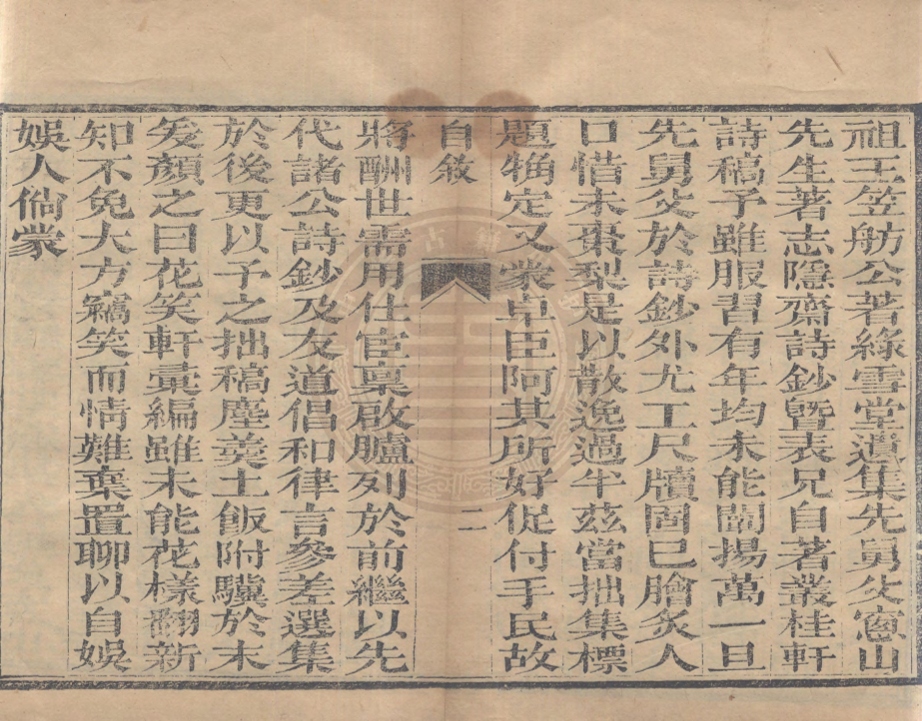 祖王笠舫公著綠雪堂遺集先舅父窻山
先生著志隱齋詩鈔曁表兄自著叢桂軒
詩稿予雖服習有年均未能闡揚萬一且
先舅父於詩鈔外尤工尺牘固已膾炙人
口惜未棗梨是以散逸過半茲當拙集標
題犓定又蒙卓臣阿其所好促付手民故
自敘
二
將酬世需用仕宦稟啟臚列於前繼以先
代諸公詩鈔及友道倡和律言參差選集
於後更以予之拙稿塵羹土飯附驥於末
爰顏之曰花笑軒彙編雖未能花樣翻新
知不免大方竊笑而情難棄置聊以自娛
娛人倘蒙